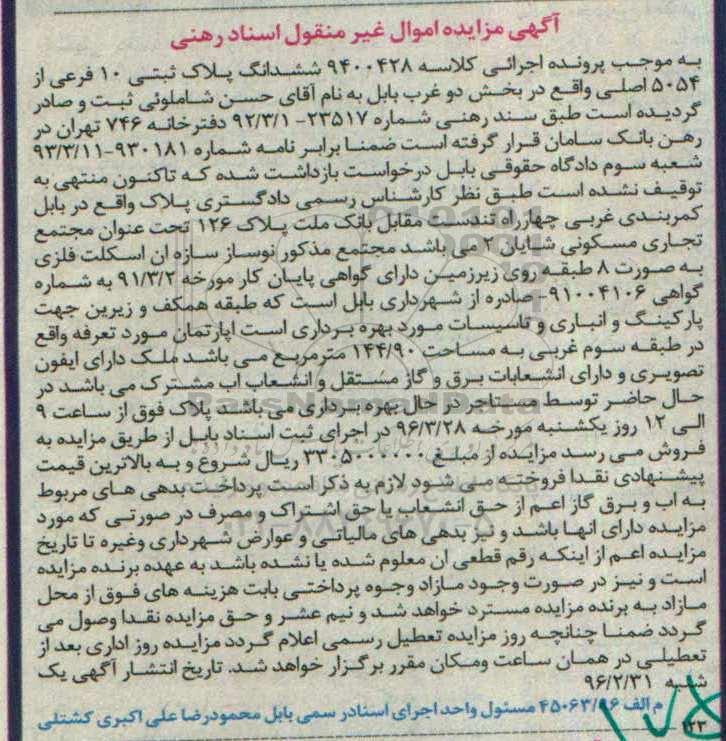 آگهی مزایده اموال غیر منقول اسناد رهنی
به موجب پرونده اجرائی کلاسه ۹۴۰۰۴۲۸ ششدانگ پلاک ثبتی ۱۰ فرعی از
۵۰۵۴ اصلی واقع در بخش دو غرب بابل به نام آقای حسن شاملوئی ثبت و صادر
گردیده است طبق سند رهنی شماره ۲۳۵۱۷- ۹۲/۳/۱ دفترخانه ۷۴۶ تهران در
رهن بانک سامان قرار گرفته است ضمنا برابر نامه شماره ۹۳۰۱۸۱-۹۳/۳/۱۱
شعبه سوم دادگاه حقوقی بابل درخواست بازداشت شده که تاکنون منتهی به
توقیف نشده است طبق نظر کارشناس رسمی دادگستری پلاک واقع در بابل
کمربندی غربی چهارراه تندست مقابل بانک ملت پلاک ۱۲۶ تحت عنوان مجتمع
تجاری مسکونی شایان ۲ می باشد مجتمع مذکور نوساز سازه ان اسکلت فلزی
به صورت ۸ طبقه روی زیرزمین دارای گواهی پایان کار مورخه ۹۱/۳/۲ به شماره
گواهی ۹۱۰۰۴۱۰۶- صادره از شهرداری بابل است که طبقه همکف و زیرین جهت
پارکینگ و انباری و تاسیسات مورد بهره برداری است اپارتمان مورد تعرفه واقع
در طبقه سوم غربی به مساحت ۱۴۴/۹۰ مترمربع می باشد ملک دارای ایفون
تصویری و دارای انشعابات برق و گاز مستقل و انشعاب اب مشترک می باشد در
حال حاضر توسط مستاجر در حال بهره برداری می باشد پلاک فوق از ساعت ۹
الی ۱۲ روز یکشنبه مورخه ۹۶/۳/۲۸ در اجرای ثبت اسناد بابل از طریق مزایده به
فروش می رسد مزایده از مبلغ ۳۳۰۵۰۰۰۰۰۰ ریال شروع و به بالاترین قیمت
پیشنهادی نقدا فروخته می شود لازم به ذکر است پرداخت بدهی های مربوط
به اب و برق گاز اعم از حق انشعاب یا حق اشتراک و مصرف در صورتی که مورد
مزایده دارای انها باشد و نیز بدهی های مالیاتی و عوارض شهرداری وغیره تا تاریخ
مزایده اعم از اینکه رقم قطعی ان معلوم شده یا نشده باشد به عهده برنده مزایده
است و نیز در صورت وجود مازاد وجوه پرداختی بابت هزینه های فوق از محل
مازاد به برنده مزایده مسترد خواهد شد و نیم عشر و حق مزایده نقدا وصول می
گردد ضمنا چنانچه روز مزایده تعطیل رسمی اعلام گردد مزایده روز اداری بعد از
تعطیلی در همان ساعت ومکان مقرر برگزار خواهد شد. تاریخ انتشار آگهی یک
شنبه ۹۶/۲/۳۱
م الف ۴۵۰۶۳/۹۶ مسئول واحد اجرای اسنادر سمی بابل محمودرضا علی اکبری کشتلی
۱۲۳
ParsNamadData